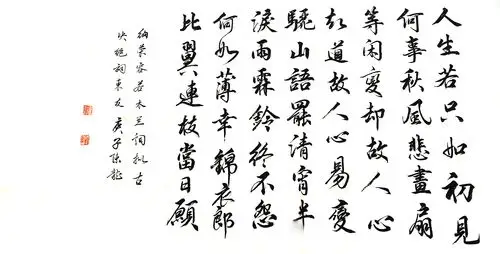 人生若只如初見
何事秋風悲畫扇
等閑變却故人心
却道故人心易變
驪山語罷清宵半
淚雨霖鈴終不怨
何如薄幸錦衣郎
比翼連枝當日願
納蘭容若木兰詞拟古
决絕詞柬友庚子陈龍